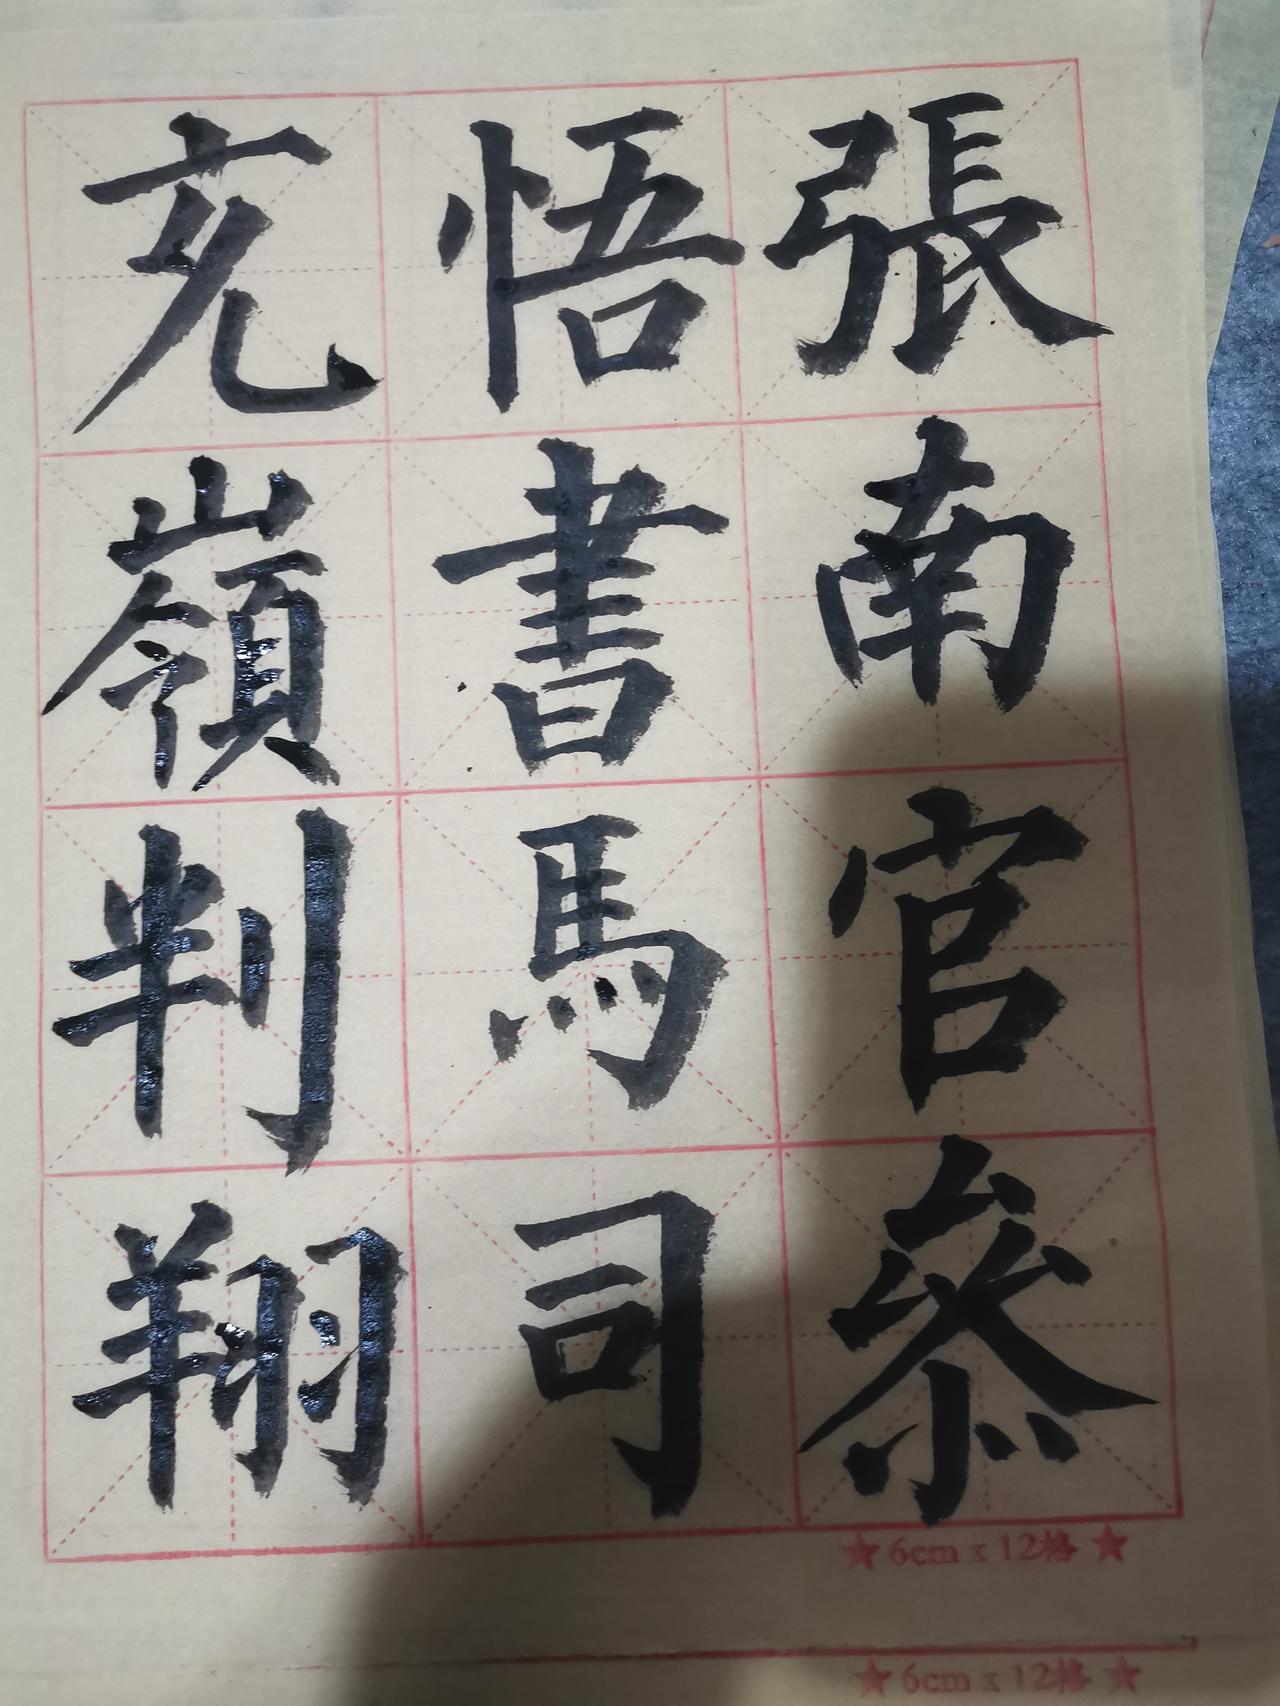 張南官㕘
悟書馬司
充嶺判翔
★ 6cm x 12格 ★
★ 6cm x 12格 ★